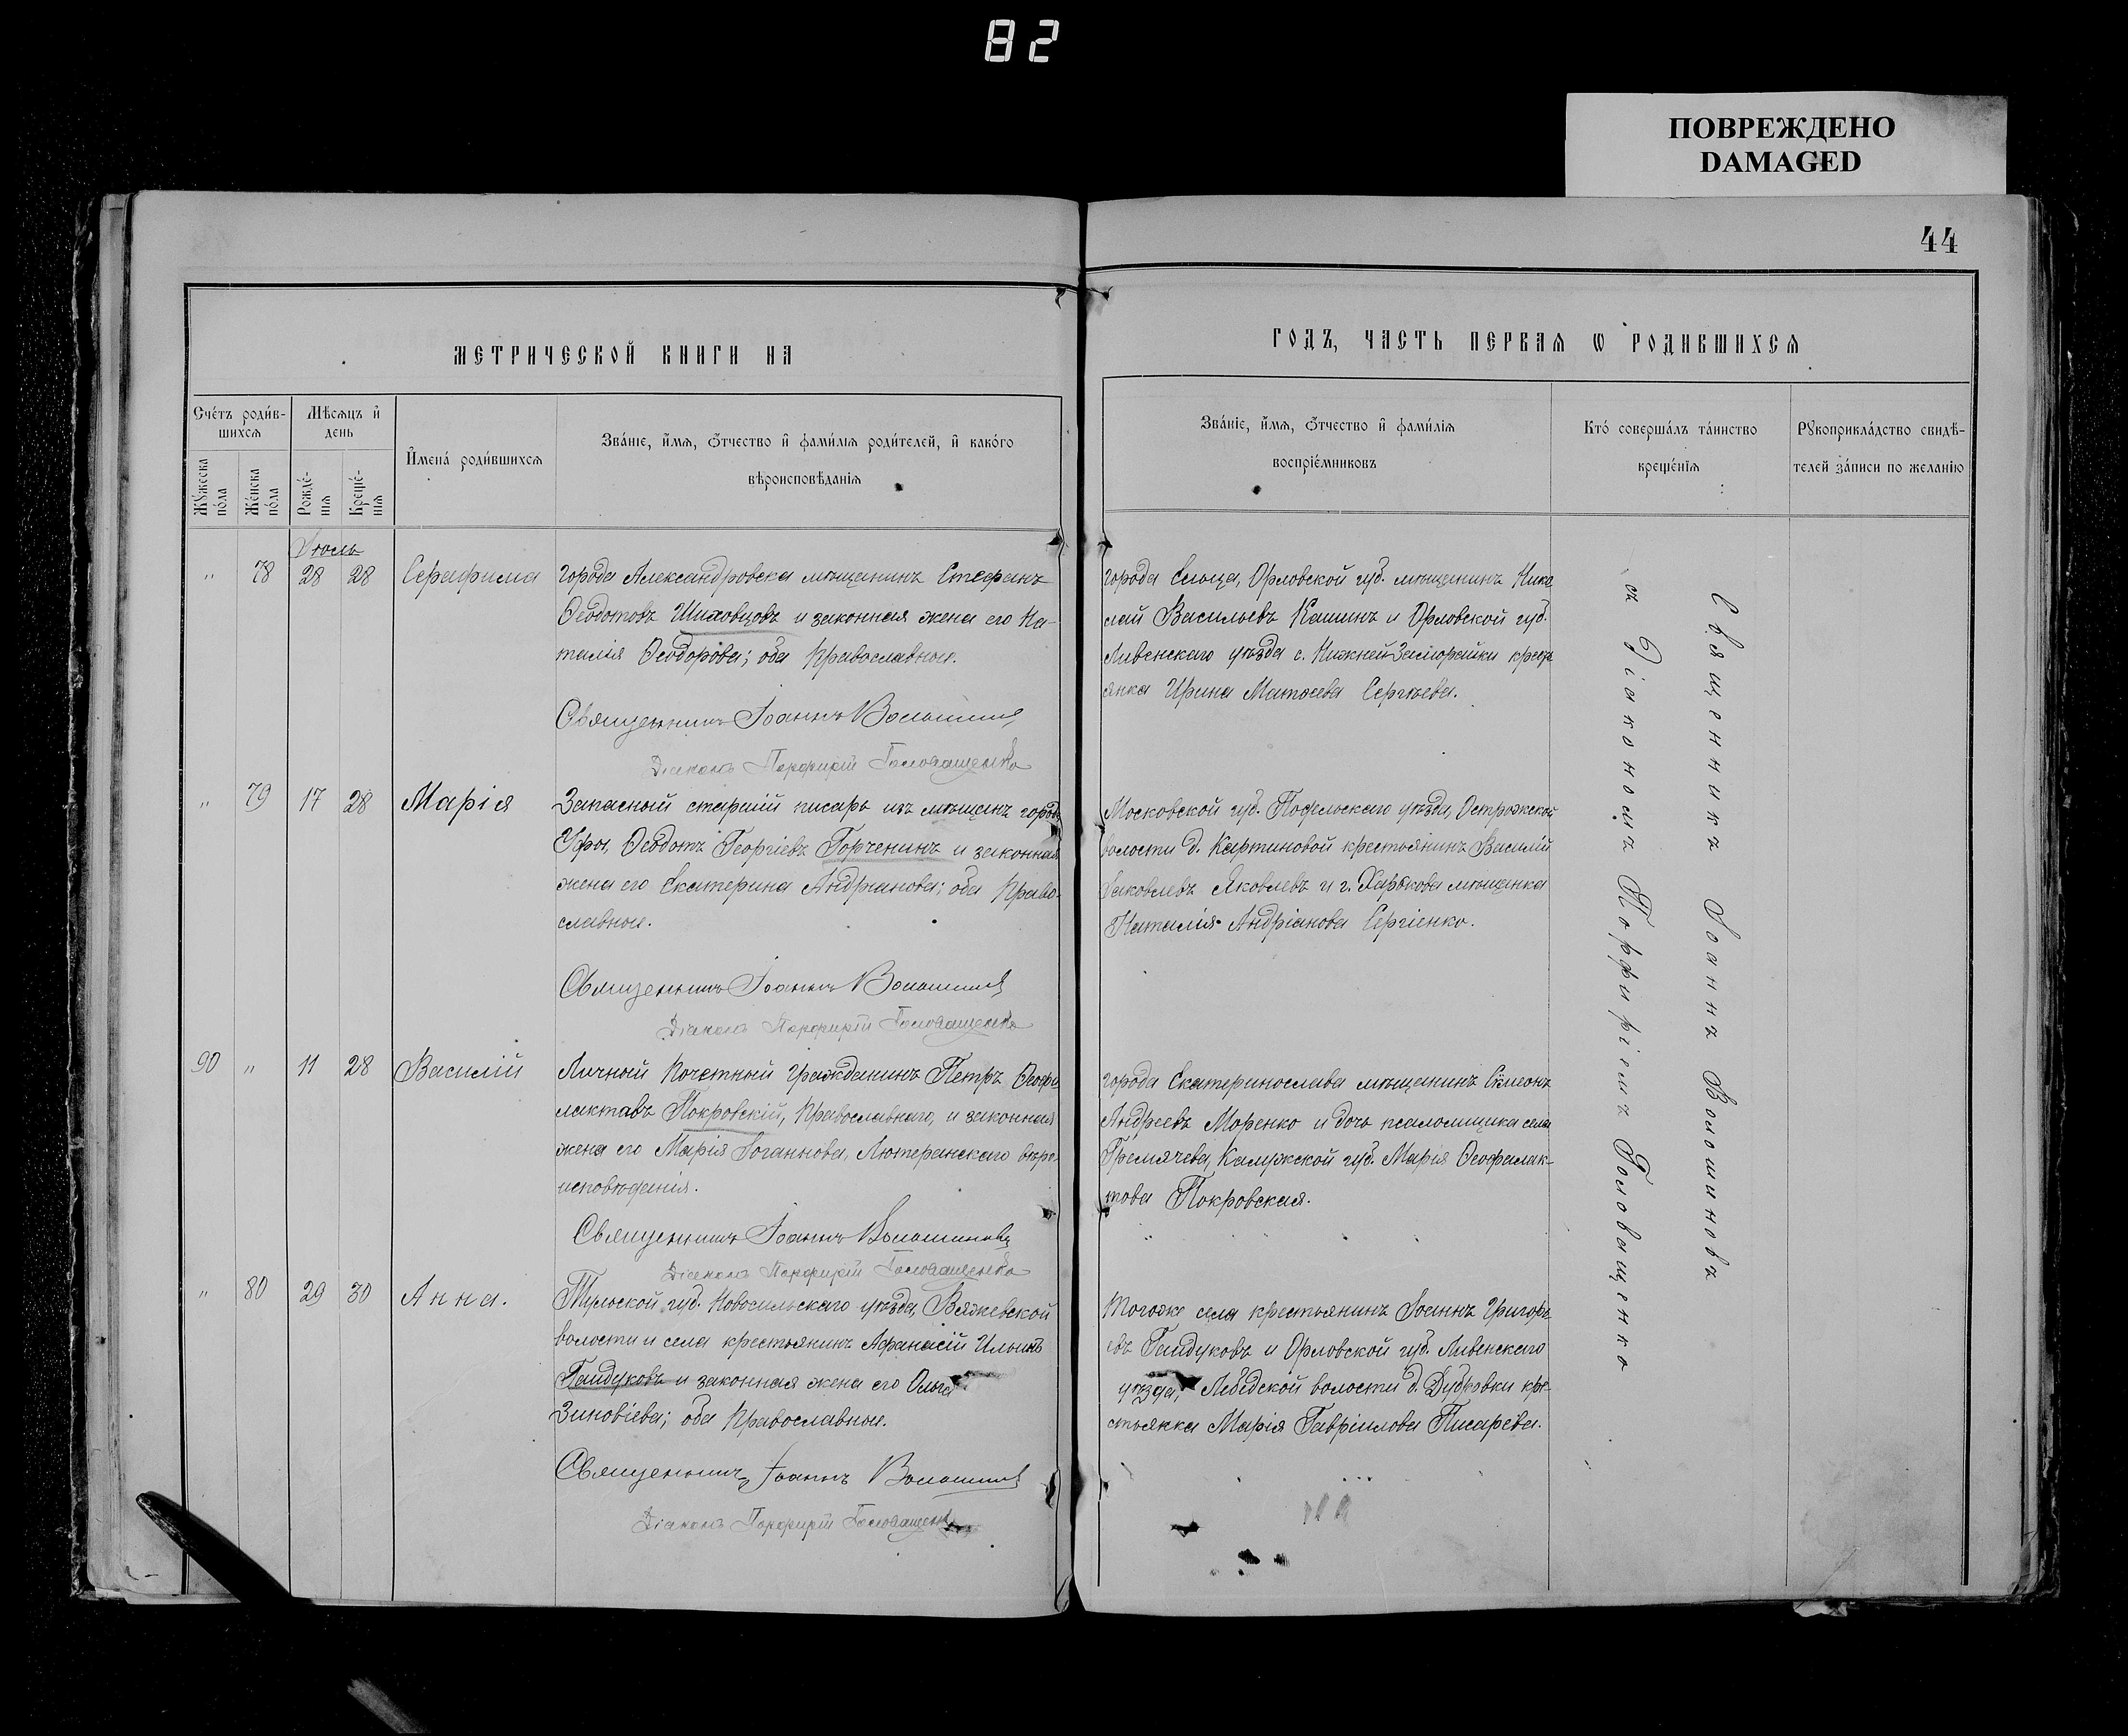 82
ПОВРЕЖДЕНО
DAMAGED
44
МЕТРИЧЕСКОЙ КНИГИ НА
ГОДЪ, ЧАСТЬ ПЕРВАЯ Ѡ РОДИВШИХСЯ
Сче́тъ роди́в-
шихсѧ
Мѣсѧцъ и҆
день
И҆мена́ роди́вшихсѧ
Зва́нїе, и҆́мѧ, ѻ҆́тчество и҆ фами́лїѧ роди́телей, и҆ како́гѡ
вѣроисповѣ́данїѧ
Мꙋ́жеска
по́ла
Же́нска
по́ла
Рожде́-
нїѧ
Креще́-
нїѧ
Зва́нїе, и҆́мѧ, ѻ҆́тчество и҆ фами́лїѧ
воспрїе́мниковъ
Кто̀ соверша́лъ та́инство
креще́нїѧ
Рꙋкоприкла́дство свидѣ́-
телей за́писи по жела́нїю
Іюль
" 78 28 28 Серафима
города Александровска мѣщанинъ Стефанъ
Ѳеодотовъ Шиховцовъ и законная жена его На-
талія Ѳеодорова; оба Православные.
Священникъ Іоаннъ Волошинъ
Діаконъ Порфирій Головащенко
города Ельца, Орловской губ. мѣщанинъ Нико
лай Васильевъ Кашинъ и Орловской губ.
Ливенскаго уѣзда с. Нижней крестья
янка Ирина Матѳеева Сергѣева.
" 79 17 28 Марія
Запасный старшій писарь изъ мѣщанъ города
Уфы, Ѳеодотъ Георгіевъ Горченинъ и законная
жена его Екатерина Андріанова; оба Право-
славные.
Священникъ Іоаннъ Волошинъ
Діаконъ Порфирій Головащенко
Московской губ. Подольскаго уѣзда, Острожской
волости д. Картиновой крестьянинъ Василій
Яковлевъ Яковлевъ и г. Харькова мѣщанка
Наталія Андріанова Сергіенко.
90 " 11 28 Василій
Личный Почетный Гражданинъ Петръ Ѳеофи
лактовъ Покровскій, Православнаго, и законная
жена его Марія Іоганнова, Лютеранскаго вѣро-
исповѣданія.
Священникъ Іоаннъ Волошиновъ
Діаконъ Порфирій Головащенко
города Екатеринослава мѣщанинъ Сѵмеонъ
Андреевъ Моренко и дочь псаломщика села
Гремячева, Калужской губ. Марія Ѳеофилак-
това Покровская.
" 80 29 30 Анна.
Тульской губ. Новосильскаго уѣзда, Вяжевской
волости и села крестьянинъ Афанасій Ильинъ
Гайдуковъ и законная жена его Ольга
Зиновіева; оба Православные.
Священникъ Іоаннъ Волошинъ
Діаконъ Порфирій Головащенко
тогоже села крестьянинъ Іоаннъ Григорь
евъ Гайдуковъ и Орловской губ. Ливенскаго
уѣзда, Лебедской волости д. Дубровки кре-
стьянка Марія Гавріилова Писарева.
Священникъ Іоаннъ Волошиновъ
съ Діакономъ Порфиріемъ Головащенко